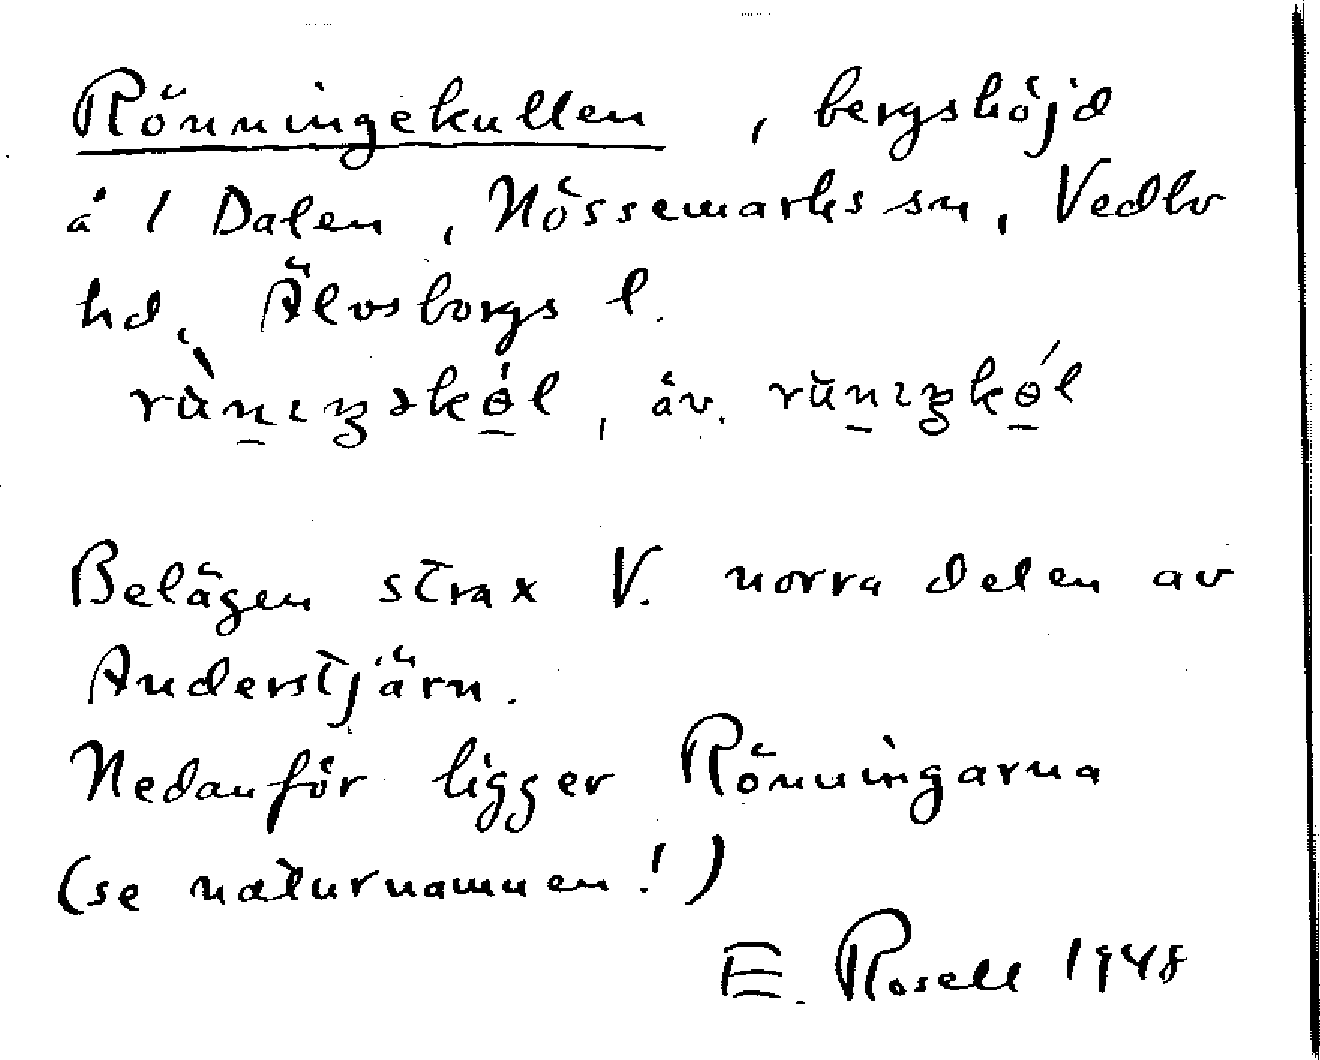 Rönningekullen, bergshöjd
å 1 Dalen, Nössemarks sn, Vedbo
hd, Älvsborgs l.
, äv.
Belägen strax V. norra delen av
Anderstjärn.
Nedanför ligger Rönningarna
(se naturnamnen!)
E. Rosell 1948